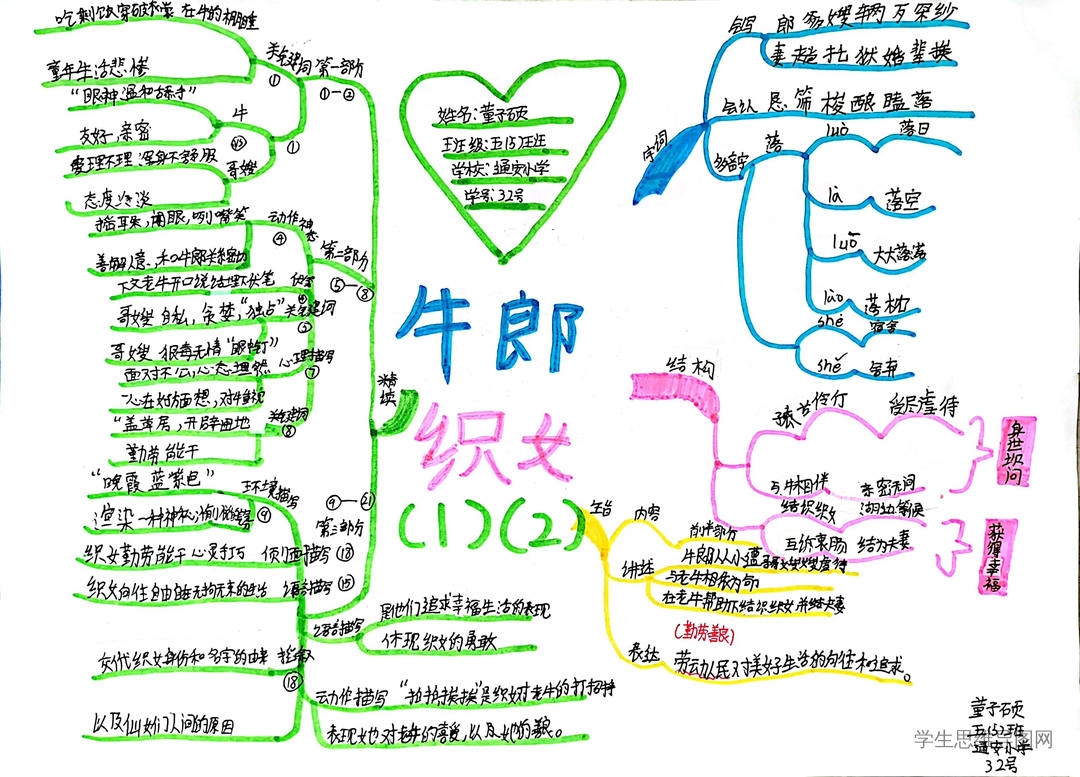 吃剩饭 穿破衣裳 在牛的棚睡
童年生活悲惨
关键词
①
第一部分
①—②
"眼神温和
友好、亲密
牛
爱理不理 浑身不舒服
态度冷淡
哥嫂
①
摇耳朵,闭眼,咧嘴笑
动作神态
④
善解人意、和牛郎关系密切
第二部分
⑤—⑧
下文老牛开口说话埋下伏笔
哥嫂 自私、贪婪,"独占"
关键词
⑤
哥嫂 狠毒无情 "眼中钉"
面对不公,心态坦然
心理描写
⑦
"盖草房,开辟田地
关键词
⑧
勤劳能干
精读
"晚霞 蓝紫色"
环境描写
⑨
⑨—㉑
第三部分
织女勤劳能干 心灵手巧
侧面描写
织女向往自由自在无拘无束的生活
语言描写
⑮
语言描写
是他们追求幸福生活的表现
体现织女的勇敢
交代织女身份和名字的由来
⑱
以及仙女们人间的原因
动作描写
是织女对老牛的打招呼
表现她也对老牛的喜爱,以及她的善良。
姓名:董子硕
班级:五(5)班
学校:通安小学
学号:32号
牛郎
织女
(1)(2)
字词
会写
郎 爷 嫂 辆 万 罕 纱
妻 趟 托 狱 婚 辈 挨
会认
恳 筛 梭 酿 瞌 落
多音字
落
luò
落日
là
落空
luō
大大落落
lào
落枕
shè
宿舍
shě
舍弃
结构
受尽虐待
与牛相伴
亲密无间
身世坎坷
结识织女
湖边等候
互诉衷肠
结为夫妻
获得幸福
主旨
内容
前半部分
讲述
牛郎从小遭哥嫂虐待
与老牛相依为命
在老牛帮助下结识织女并结夫妻
(勤劳善良)
表达
劳动人民对美好生活的向往和追求。
董子硕
五(5)班
通安小学
32号
学生思维导图网